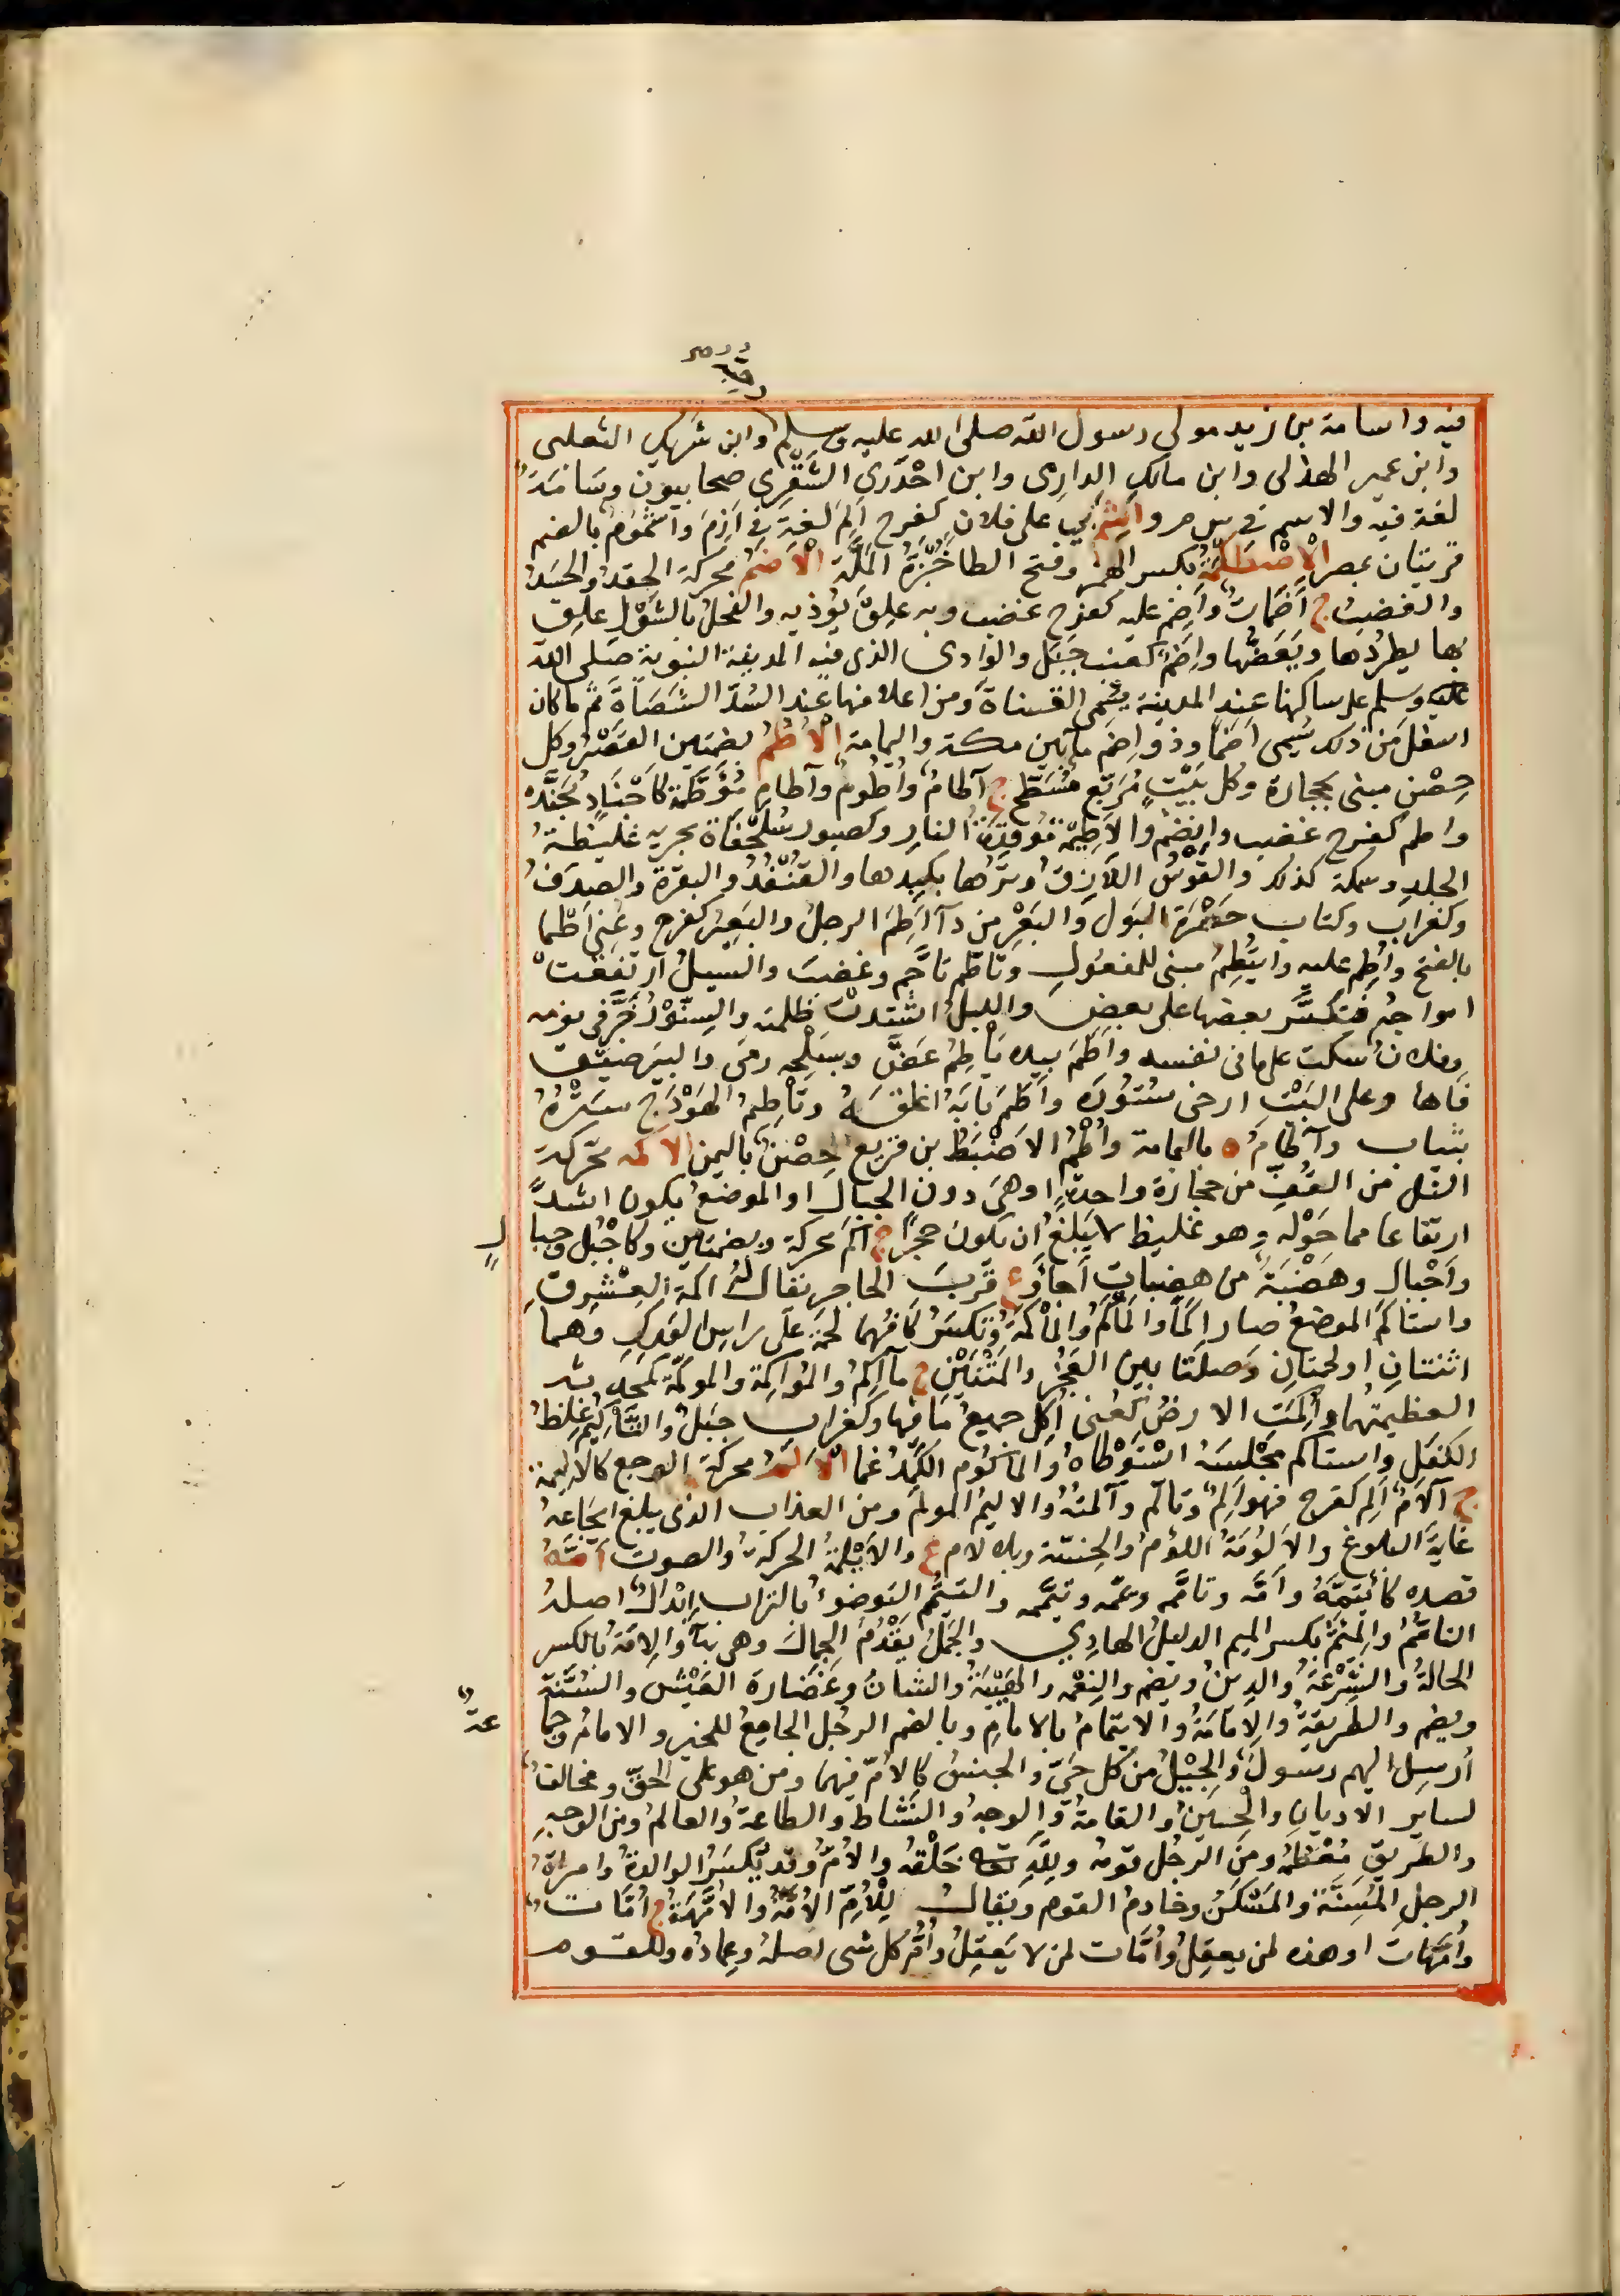 فيه واسامة بن زيد مولى رسول الله صلى الله عليه وسلم وابن شريك الثعلبي
وابن عمير الهذلى وابن مالك الدارمى وابن اخدرى الشقرى صحابيون وسامة
لغة فيه والاسم فى س م و اشم بى على فلان كفرح الم لغة فى ازم واشموم بالضم
قريتان بمصر الاصطكمة بكسر الهمز وفتح الطا خبزة الملة الاضم محركة الحقد والحسد
والغضب ج اضمات واضم عليه كفرح غضب وبه علق يوذيه والفحل بالشول علق
بها يطردها ويعضها واضم كعنب جبل والوادى الذى فيه المدينة النبوية صلى الله
عليه وسلم على ساكنها عند المدينة يسمى القناة ومن اعلا منها عند السد الشصاة ثم ما كان
اسفل من ذلك يسمى اضما وذو اضم ما بين مكة واليمامة الاطم بضمتين القصر وكل
حصن مبنى بحجارة وكل بيت مربع مسطح ج آطام واطوم وآطام مؤطمة كاجناد مجندة
واطم كفرح غضب وانضم والاطيمة موقدة النار وكصبور سلحفاة بحرية غليظة
الجلد وسمكة كذلك والقوس اللازق وترها بكبدها والقنفذ والبقرة والصدف
وكغراب وكتاب حصرة البول والبعر من دآ اطم الرجل والبعير كفرح وعنى اطما
بالفتح واطم عليه وايتطم مبنى للمفعول وتاطم تاجم وغضب والسيل ارتفعت
امواجه فتكسر بعضها على بعض والليل اشتدت ظلمته والسنور خر فى نومه
وفلان سكت على مافى نفسه واطم بيده ياطم عض وبسلحه رمى والبير ضيق
فاها وعلى البيت ارخى ستوره واطم بابه اغلقه وتاطيم الهودج ستره
بثياب وآطام ه باليمامة واطم الاضبط بن قريع حصن باليمن الاكمة محركة
التل من القف من حجارة واحدة او هى دون الجبال او الموضع يكون اشد
ارتفاعا مما حوله وهو غليظ لا يبلغ ان يكون حجرا ج اكم محركة وبضمتين وكاجبل وجبال
واجبال وهضبة من هضبات اجاو ع قرب الحاجر يقال له اكمة العشرق
واستاكم الموضع صار اكما والماكم والماكمة وتكسر كافهما لحمة على راس الورك وهما
اثنتان او لحمتان وصلتا بين العجز والمتنين ج مآكم والمؤاكمة والموكمة كمحدثة
العظيمتهما واكمت الارض كعنى اكل جميع مافيها وكغراب جبل والتاكيم غلظ
الكفل واستاكم مجلسه استوطاه والماكوم الكمد غما الالم محركة الوجع كالايلمة
ج آلام الم كفرح فهو الم وتالم وآلمته والاليم المولم ومن العذاب الذى يبلغ ايجاعه
غاية البلوغ والالومة اللؤم والخسة وبلا لام ع والايلمة الحركة والصوت امه
قصده كائتمه وامه وتاممه ويممه وتيممه والتيمم التوضوء بالتراب ابدال اصله
التامم والميم بكسر الميم الدليل الهادى والجمل يقدم الجمال وهى بهآ والامة بالكسر
الحالة والشرعة والدين ويضم والنعمة والهيئة والشان وغضارة العيش والسنة
ويضم والطريقة والامامة والايتمام بالامام وبالضم الرجل الجامع للخير والامام وجماعة
ارسل اليهم رسول والجيل من كل حى والجنس كالام فيهما ومن هو على الحق ومخالف
لساير الاديان والحين والقامة والوجه والنشاط والطاعة والعالم ومن الوجه
والطريق معظمه ومن الرجل قومه ولله تعه خلقه والام وقد تكسر الوالدة وامراة
الرجل المسنة والمسكن وخادم القوم ويقال للام الامة والامهة ج امات
وامهات او هذه لمن يعقل وامات لمن لا يعقل وام كل شى اصله وعماده وللقوم